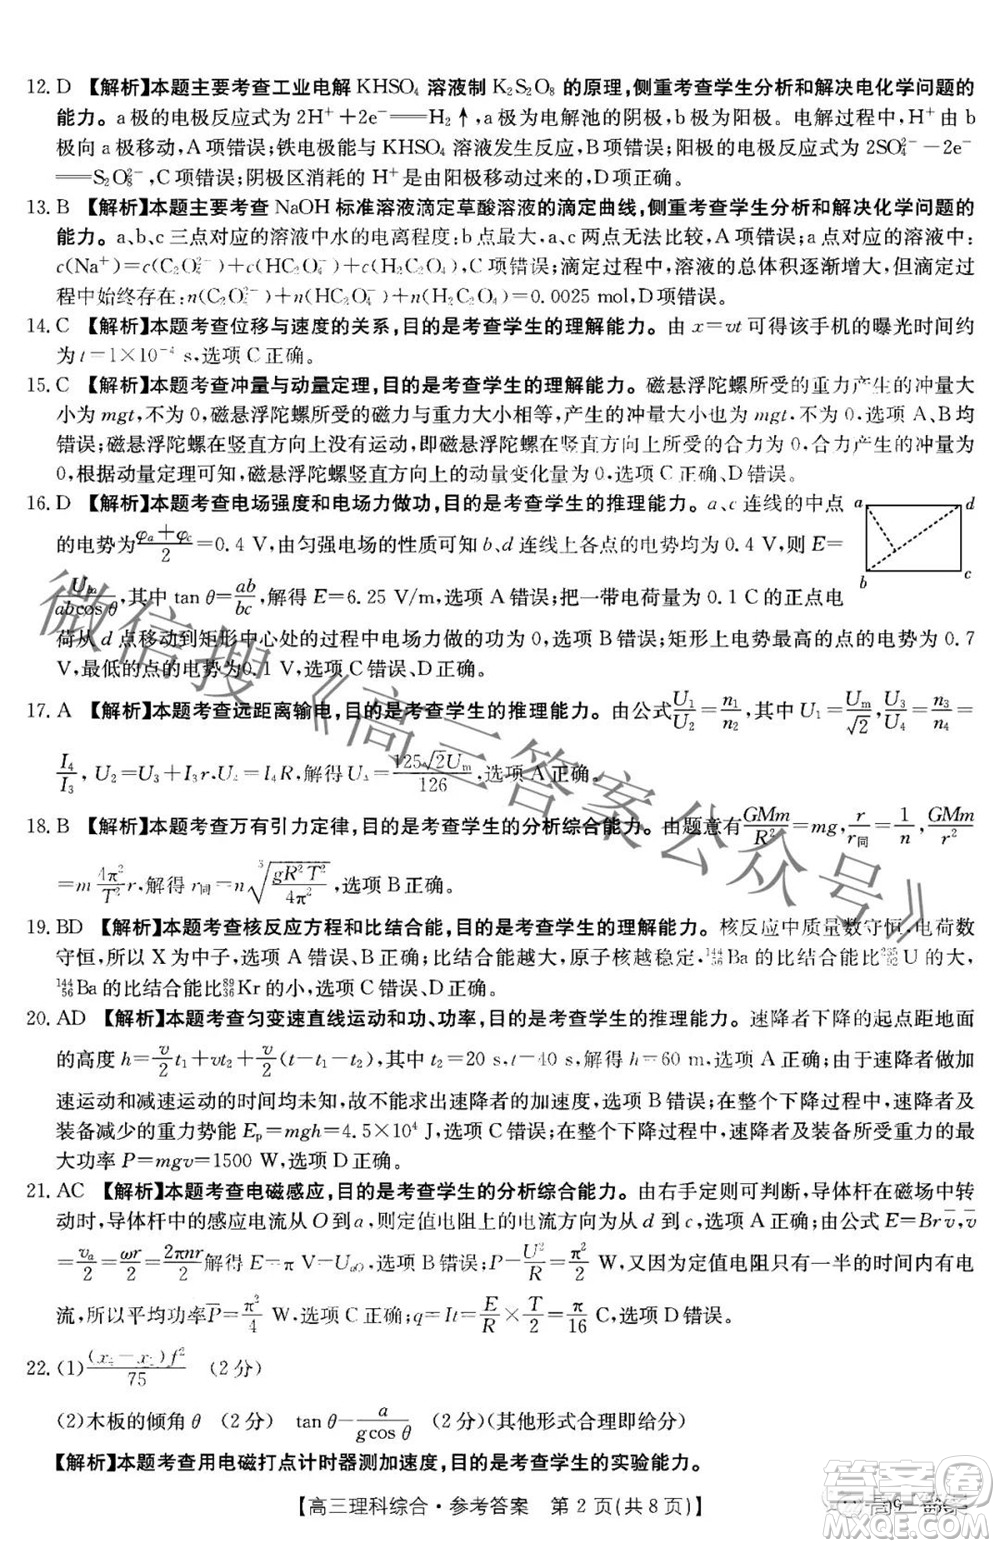 12. D 【解析】本题主要考查工业电解 KHSO₄ 溶液制 K₂S₂O₈ 的原理,侧重考查学生分析和解决电化学问题的
能力。a极的电极反应式为 2H⁺+2e⁻══H₂↑,a极为电解池的阴极,b极为阳极。电解过程中,H⁺ 由 b
极向a极移动,A项错误;铁电极能与 KHSO₄ 溶液发生反应,B项错误;阳极的电极反应式为 2SO₄²⁻-2e⁻
══S₂O₈²⁻,C项错误;阴极区消耗的 H⁺ 由阳极移动过来,D项正确。
13. B 【解析】本题主要考查 NaOH 标准溶液滴定草酸溶液的滴定曲线,侧重考查学生分析和解决化学问题的
能力。a、b、c三点对应的溶液中水的电离程度:b点最大,a、c两点无法比较,A项错误;a点对应的溶液中:
c(Na⁺)=c(C₂O₄²⁻)+c(HC₂O₄⁻)+c(H₂C₂O₄),C项错误;滴定过程中,溶液的总体积逐渐增大,但滴定过
程中始终存在:n(C₂O₄²⁻)+n(HC₂O₄⁻)+n(H₂C₂O₄)=0.0025 mol,D项错误。
14. C 【解析】本题考查位移与速度的关系,目的是考查学生的理解能力。由 x=vt 可得该手机的曝光时间约
为 t=1×10⁻⁴ s,选项C正确。
15. C 【解析】本题考查冲量与动量定理,目的是考查学生的理解能力。磁悬浮陀螺所受的重力产生的冲量大
小为 mgt,不为0,磁悬浮陀螺所受的磁力与重力大小相等,产生的冲量大小也为 mgt,不为0,选项A、B均
错误;磁悬浮陀螺在竖直方向上没有运动,即磁悬浮陀螺在竖直方向上所受的合力为0,合力产生的冲量为
0,根据动量定理可知,磁悬浮陀螺竖直方向上的动量变化量为0,选项C正确、D错误。
16. D 【解析】本题考查电场强度和电场力做功,目的是考查学生的推理能力。a、c连线的中点
的电势为(φₐ+φ꜀)/2=0.4 V,由匀强电场的性质可知b、d连线上各点的电势均为0.4 V,则 E=
U_ba/(ab cos θ),其中 tan θ=ab/bc,解得 E=6.25 V/m,选项A、B错误;把一带电荷量为0.1 C的正点电
荷从d点移动到矩形中心处的过程中电场力做的功为0,选项C错误;矩形上电势最高的点的电势为0.7
V,电势最低的点的电势为0.1 V,选项C错误、D正确。
a d b c
17. A 【解析】本题考查远距离输电,目的是考查学生的推理能力。由公式 U₁/U₂=n₁/n₂,其中 U₁=U_m/√2,U₃/U₄=n₃/n₄=
I₄/I₃,U₂=U₃+I₃r、U₄=I₄R,解得 U₄=125√2U_m/126,选项A正确。
18. B 【解析】本题考查万有引力定律,目的是考查学生的分析综合能力。由题意有 GMm/R²=mg,r/r同=1/n,GMm/r²
=m(4π²/T²)r,解得 r同=n∛(gR²T²/4π²),选项B正确。
19. BD 【解析】本题考查核反应方程和比结合能,目的是考查学生的理解能力。核反应中质量数守恒,电荷数
守恒,所以X为中子,选项A错误、B正确;比结合能越大,原子核越稳定,¹⁴⁴₅₆Ba的比结合能比²³⁵₉₂U的大,
¹⁴⁴₅₆Ba的比结合能比⁸⁹₃₆Kr的小,选项C错误、D正确。
20. AD 【解析】本题考查匀变速直线运动和功、功率,目的是考查学生的推理能力。速降者下降的起点距地面
的高度 h=(v/2)t₁+vt₂+(v/2)(t-t₁-t₂),其中 t₂=20 s,t=40 s,解得 h=60 m,选项A正确;由于速降者做加
速运动和减速运动的时间均未知,故不能求出速降者的加速度,选项B错误;在整个下降过程中,速降者及
装备减少的重力势能 Eₚ=mgh=4.5×10⁴ J,选项C错误;在整个下降过程中,速降者及装备所受重力的最
大功率 P=mgv=1500 W,选项D正确。
21. AC 【解析】本题考查电磁感应,目的是考查学生的分析综合能力。由右手定则可判断,导体杆在磁场中转
动时,导体杆中的感应电流从O到a,则定值电阻上的电流方向为从d到c,选项A正确;由公式 E=Br v̄,v̄
=vₐ/2=ωr/2=2πnr/2,解得 E=π V=U_aO,选项B错误;P=U²/R=π²/2 W,因为定值电阻只有一半的时间内有电
流,所以平均功率 P̄=π²/4 W,选项C正确;q=It=E/R×T/2=π/16 C,选项D错误。
22. (1)(x₄-x₂)f²/75 (2分)
(2)木板的倾角θ (2分) tan θ-a/(gcos θ) (2分)(其他形式合理即给分)
【解析】本题考查用电磁打点计时器测加速度,目的是考查学生的实验能力。
【高三理科综合·参考答案 第2页(共8页)】
微信搜《高三答案公众号》